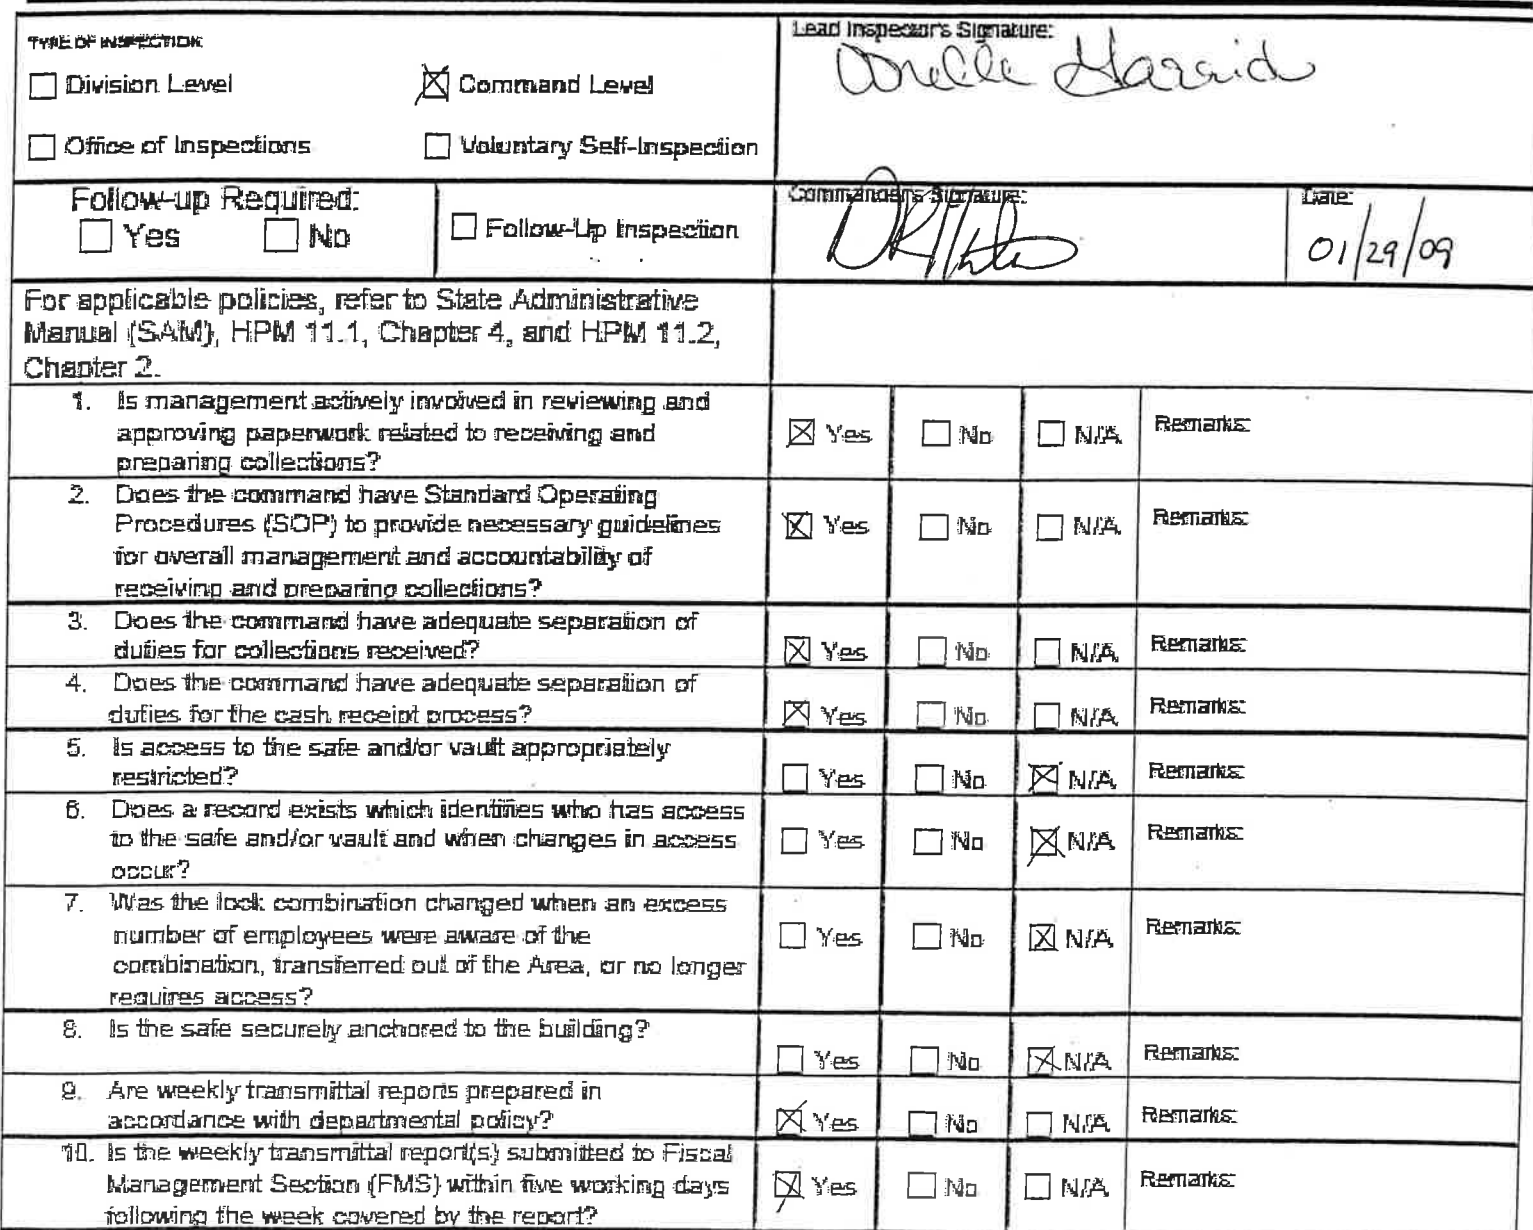 TYPE OF INSPECTION:
Division Level
Command Level
Office of Inspections
Voluntary Self-Inspection
Lead Inspector's Signature:
Follow-up Required:
Yes No
Follow-Up Inspection
Commander's Signature:
Date:
01/29/09
For applicable policies, refer to State Administrative
Manual (SAM), HPM 11.1, Chapter 4, and HPM 11.2,
Chapter 2.
1. Is management actively involved in reviewing and
approving paperwork related to receiving and
preparing collections?
Yes No N/A Remarks:
2. Does the command have Standard Operating
Procedures (SOP) to provide necessary guidelines
for overall management and accountability of
receiving and preparing collections?
Yes No N/A Remarks:
3. Does the command have adequate separation of
duties for collections received?
Yes No N/A Remarks:
4. Does the command have adequate separation of
duties for the cash receipt process?
Yes No N/A Remarks:
5. Is access to the safe and/or vault appropriately
restricted?
Yes No N/A Remarks:
6. Does a record exists which identifies who has access
to the safe and/or vault and when changes in access
occur?
Yes No N/A Remarks:
7. Was the lock combination changed when an excess
number of employees were aware of the
combination, transferred out of the Area, or no longer
requires access?
Yes No N/A Remarks:
8. Is the safe securely anchored to the building?
Yes No N/A Remarks:
9. Are weekly transmittal reports prepared in
accordance with departmental policy?
Yes No N/A Remarks:
10. Is the weekly transmittal report(s) submitted to Fiscal
Management Section (FMS) within five working days
following the week covered by the report?
Yes No N/A Remarks: